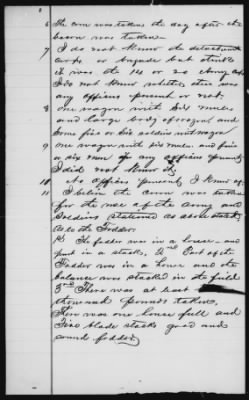 6 The corn was taken the day after the
bacon was taken
7 I do not know the detachment
corps or brigade but think
it was the 14 or 20 Army Corps
I do not know whether there was
any officers present or not
8 one wagon with six mules
and large body of
some five or six soldiers with wagon
9 one wagon with six mules and five
or six men If any officers present
I did not know it
10 No officers present I know of
11 I believe the corn was taken
for the use of the Army and
Soldiers stationed as above stated
As to the Fodder
1st The fodder was in a house and
part in a stack, 2nd Part of the
Fodder was in a house and the
balance was stacked in the field
3rd There was at least
thousand pounds taken
There was one house full and
Five blade stacks good and
sound fodder